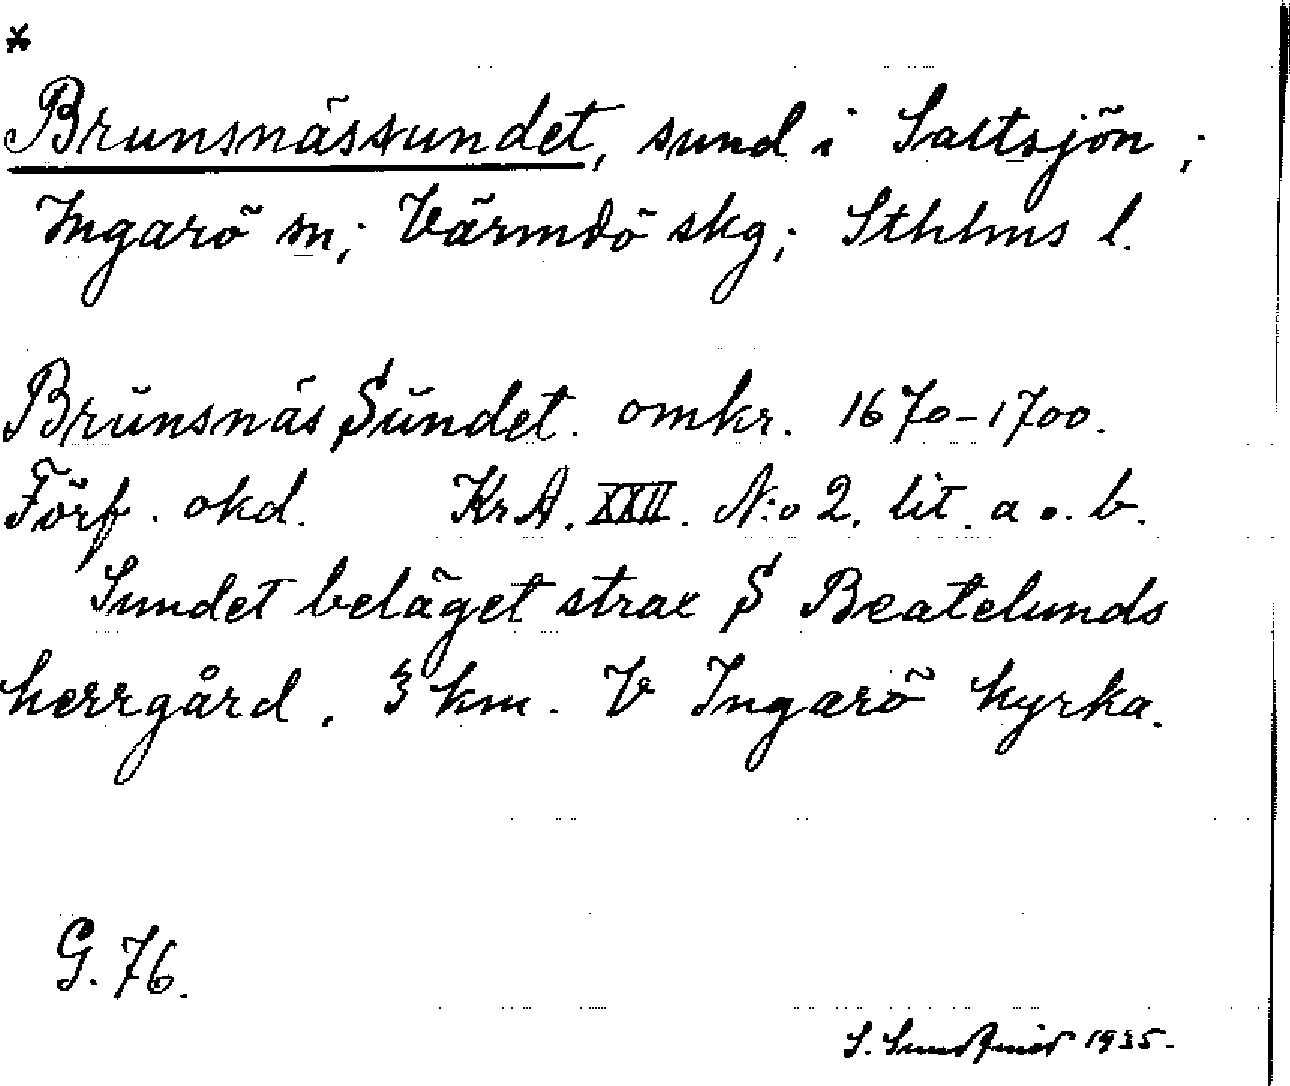 *
Brunsnässundet, sund i Saltsjön;
Ingarö sn; Värmdö skg; Sthlms l.
Brŭnsnäs Sŭndet. omkr. 1670-1700.
Förf. okd. KrA. XXII. N:o 2. lit. a o. b.
Sundet beläget strax S Beatelunds
herrgård. 3 km. V Ingarö kyrka.
G. 76.
S. 1935.